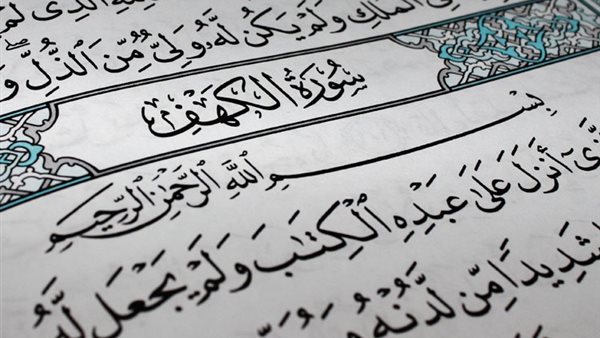 ٱلَّذِى لَمْ
ٱلْمُلْكِ وَلَمْ يَكُن لَّهُۥ وَلِىٌّ مِّنَ ٱلذُّلِّ ۖ وَ
سُورَةُ الكَهْفِ
بِسْمِ ٱللَّهِ ٱلرَّحْمَٰنِ ٱلرَّحِيمِ
أَنزَلَ عَلَىٰ عَبْدِهِ ٱلْكِتَٰبَ وَلَمْ يَجْعَل لَّهُۥ
شَدِيدًا مِّن لَّدُنْهُ وَ